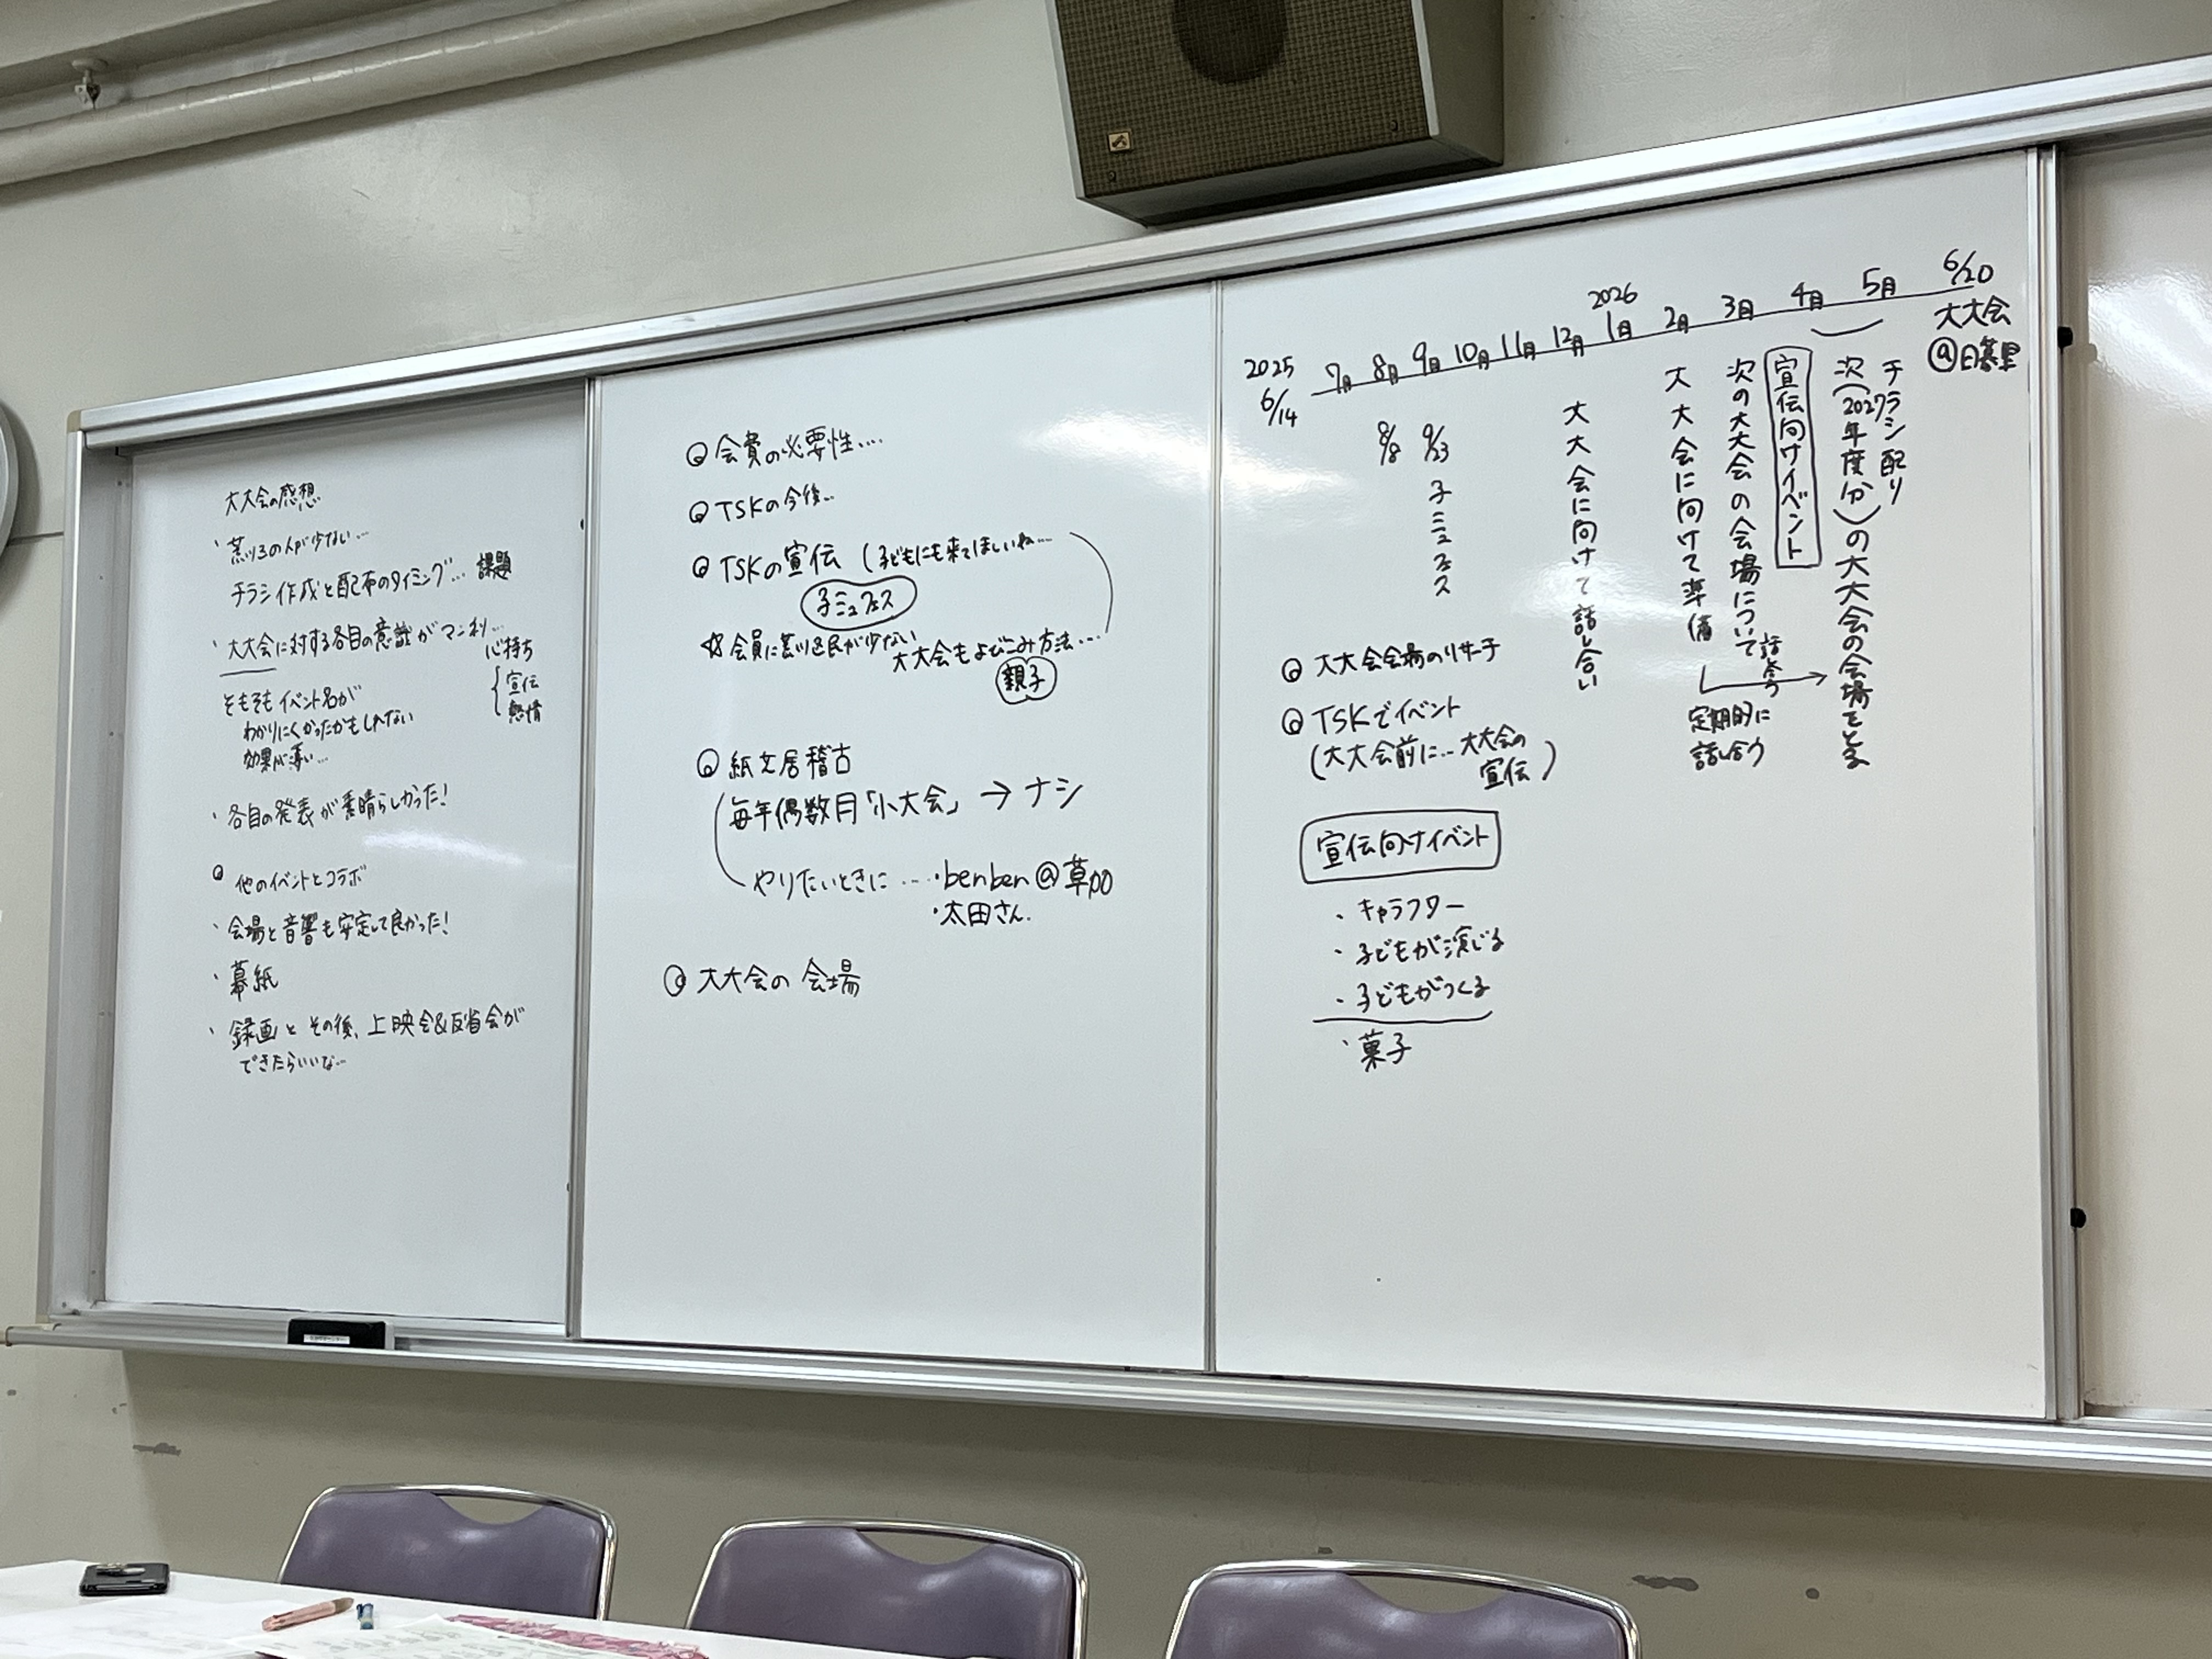 大大会の感想
・荒川の人が少ない…
チラシ作成と配布のタイミング… 課題
・大大会に対する各自の意識がマンネリ…
心持ち
宣伝
熱情
そもそもイベント名が
わかりにくかったかもしれない
効果が薄い…
・各自の発表が素晴らしかった!
◎ 他のイベントとコラボ
・会場と音響も安定して良かった!
・幕紙
・録画と その後、上映会&反省会が
できたらいいな…
◎ 会費の必要性…
◎ TSKの今後…
◎ TSKの宣伝 (子どもにも来てほしいね…
子ミュフェス
☆ 会員に荒川区民が少ない
大大会もよびこみ方法…
親子
◎ 紙文居稽古
毎年偶数月「小大会」→ナシ
やりたいときに…・benben@草加
・太田さん.
◎ 大大会の 会場
2025
6/14
7月 8月 9月 10月 11月 12月 2026 1月 2月 3月 4月 5月 6/20
大大会
@日暮里
8/8
9/23 子ミュフェス
大大会に向けて話し合い
大大会に向けて準備
次の大大会の会場について話し合う
宣伝向けイベント
チラシ配り
次(2027年度分)の大大会の会場をとる
定期的に
話し合う
◎ 大大会会場のリサーチ
◎ TSKでイベント
(大大会前に…大大会の
宣伝)
宣伝向けイベント
・キャラクター
・子どもが演じる
・子どもがつくる
・菓子